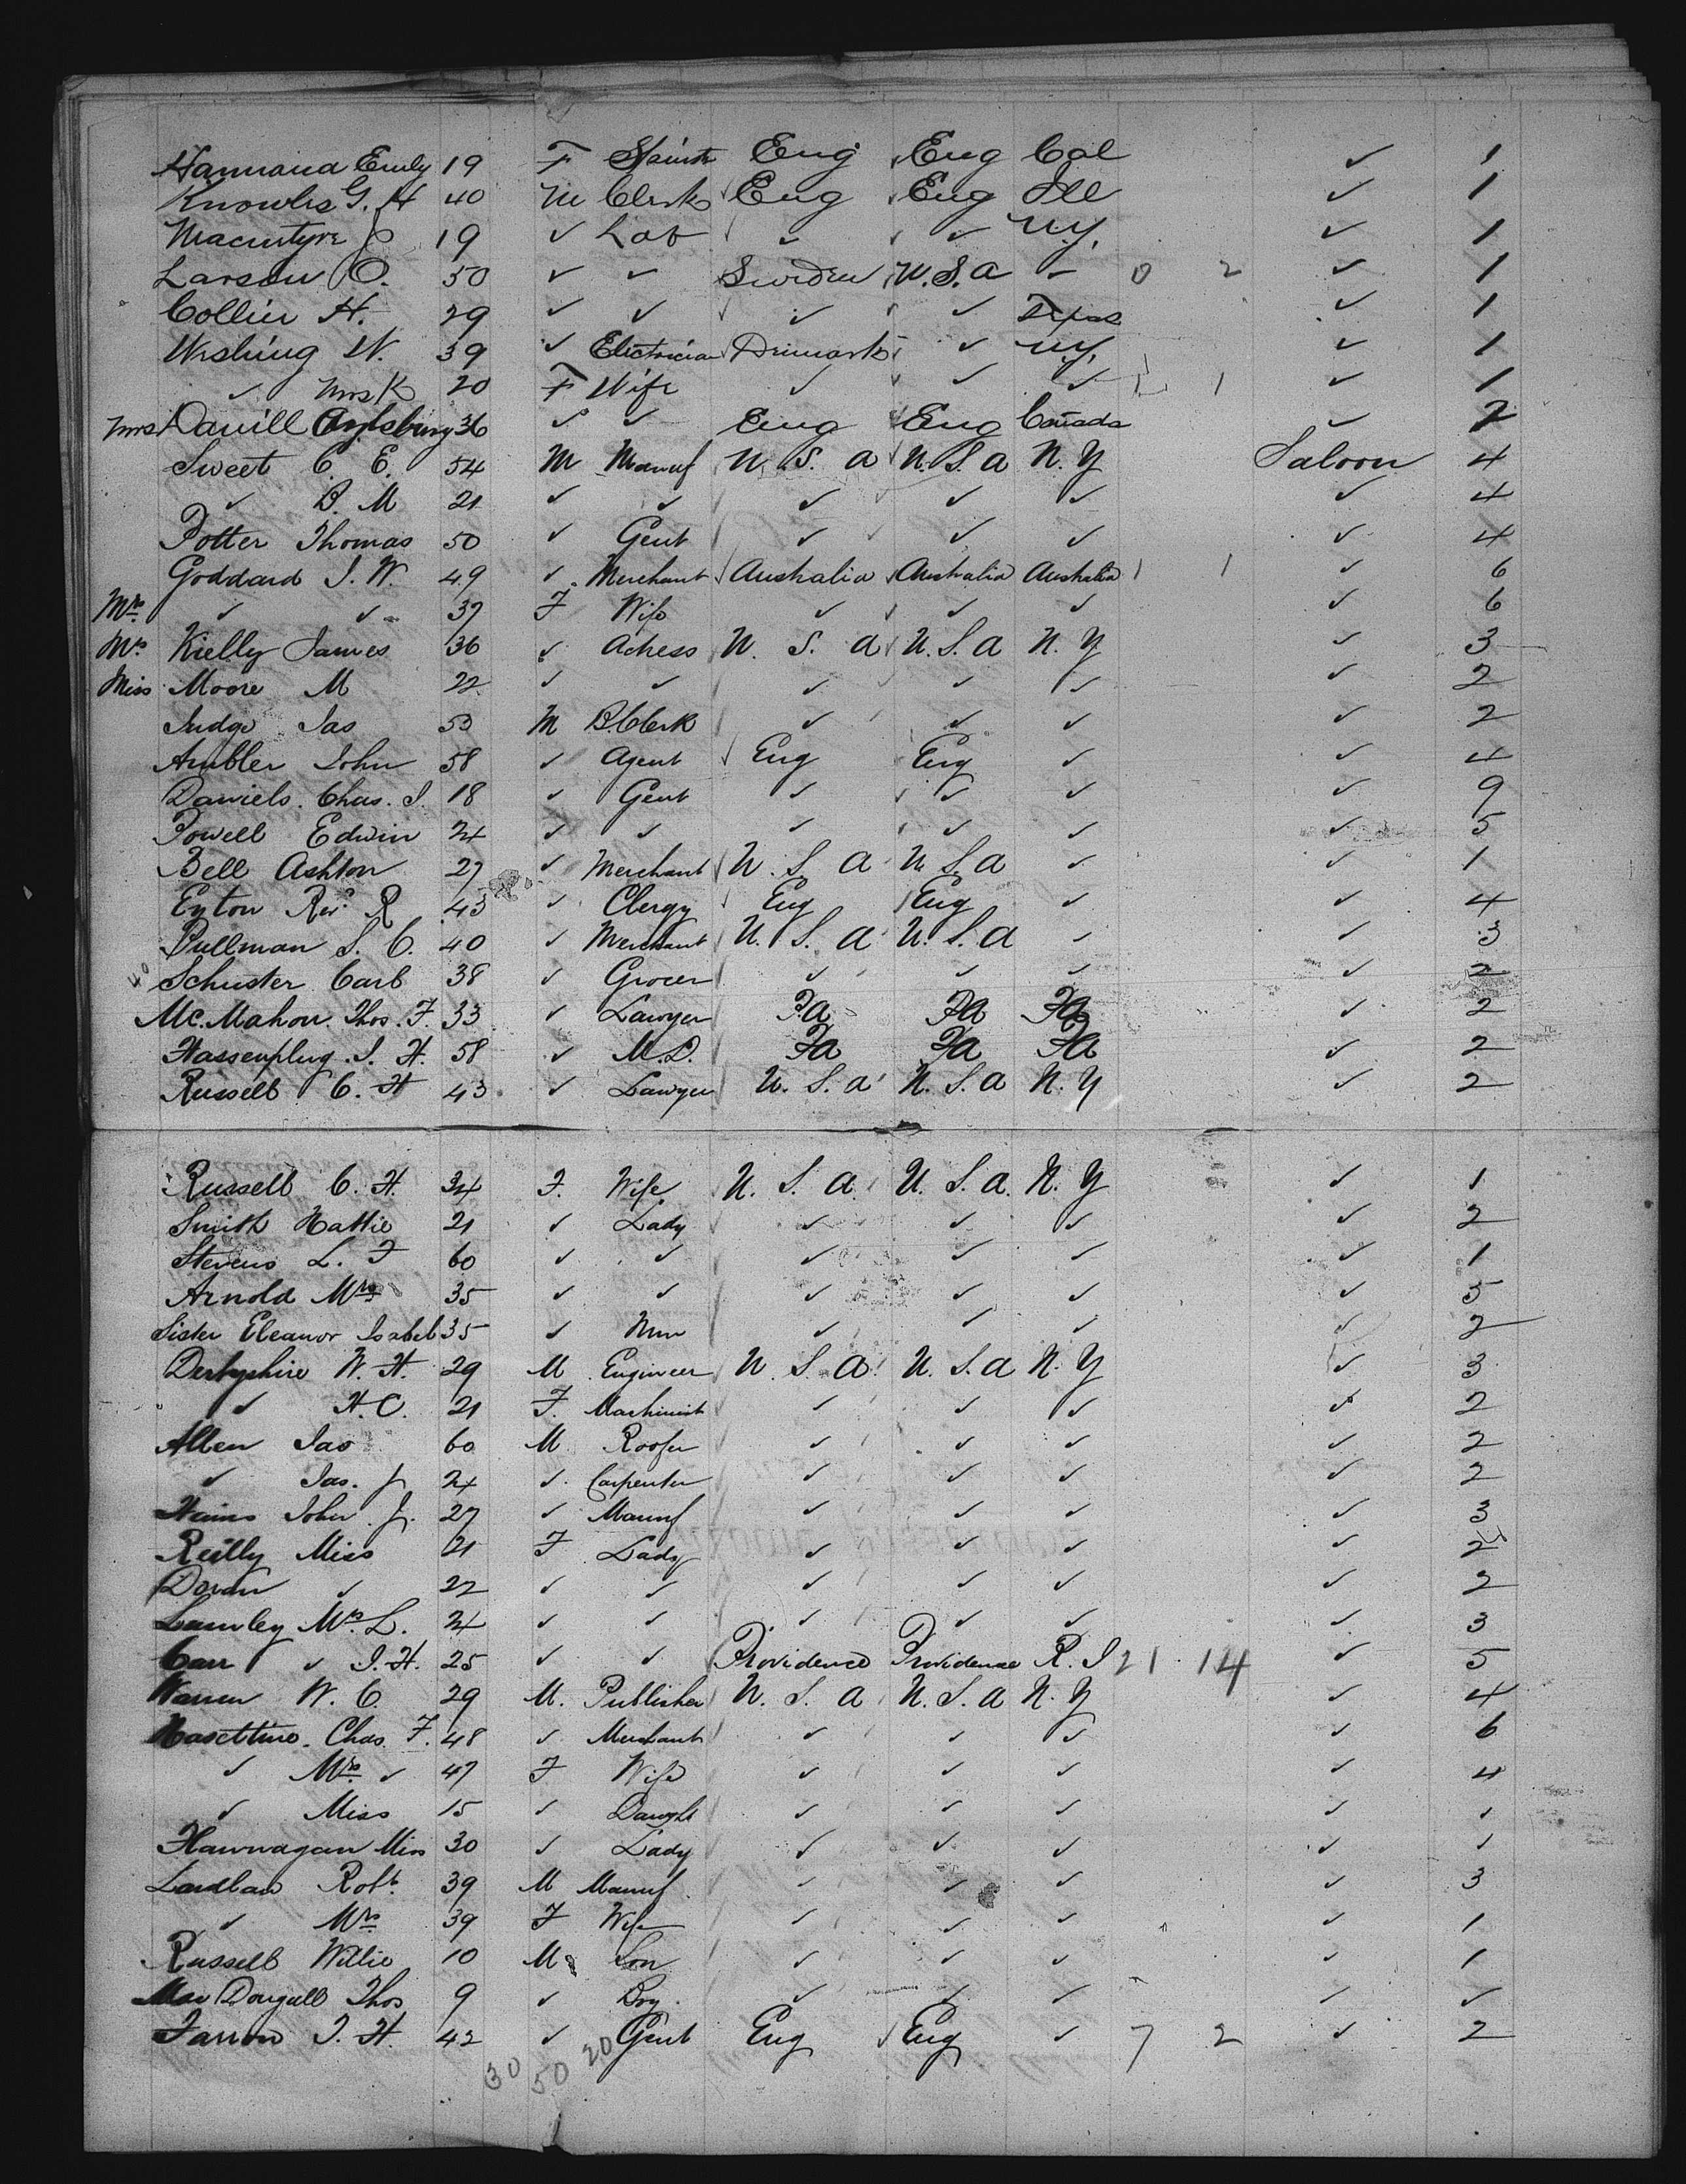 Hannana Emily 19 F Eng Eng Cal ✓ 1
Knowles G. H 40 M Clerk Eng Eng Ill ✓ 1
Macintyre J 19 ✓ Lab ✓ ✓ NY, ✓ 1
Larson O. 50 ✓ ✓ Sweden U.S.A ✓ 0 2 ✓ 1
Collin H. 29 ✓ ✓ ✓ ✓ Texas ✓ 1
Wishing W. 39 ✓ Electrician Denmark ✓ NY, ✓ 1
✓ Mrs K 20 F Wife ✓ ✓ ✓ 1 1 ✓ 1
Mrs Davill Aylsbury 36 ✓ ✓ Eng Eng Canada ✓ 2
Sweet C. E. 54 M Manuf U. S. A U.S.A N.Y Saloon 4
✓ B. M 21 ✓ ✓ ✓ ✓ ✓ ✓ 4
Potter Thomas 50 ✓ Gent ✓ ✓ ✓ ✓ 4
Goddard J. W. 49 ✓ Merchant Australia Australia Australia 1 1 ✓ 6
Mrs ✓ ✓ 37 F Wife ✓ ✓ ✓ ✓ 6
Mrs Kielly James 36 ✓ Actress U. S. A U.S.A N.Y ✓ 3
Miss Moore M 22 ✓ ✓ ✓ ✓ ✓ ✓ 2
Judge Jas 53 M B.Clerk ✓ ✓ ✓ ✓ 2
Ambler John 58 ✓ Agent Eng Eng ✓ ✓ 4
Daniels. Chas. J. 18 ✓ Gent ✓ ✓ ✓ ✓ 9
Powell Edwin 24 ✓ ✓ ✓ ✓ ✓ ✓ 5
Bell Ashton 27 ✓ Merchant U. S. A U.S.A ✓ ✓ 1
Eyton Revd R 43 ✓ Clergy Eng Eng ✓ ✓ 4
Pullman S. C. 40 ✓ Merchant U. S. A U.S.A ✓ ✓ 3
Schuster Carl 38 ✓ Grocer ✓ ✓ ✓ ✓ 2
Mc.Mahon. Thos. F. 33 ✓ Lawyer Pa Pa Pa ✓ 2
Hassenplug. J. H. 58 ✓ M.D. Pa Pa Pa ✓ 2
Russell C. H 43 ✓ Lawyer U. S. A U.S.A N.Y ✓ 2
Russell C. H. 34 F. Wife U. S. A U.S.A. N.Y ✓ 1
Smith Hattie 21 ✓ Lady ✓ ✓ ✓ ✓ 2
Stevens L. F 60 ✓ ✓ ✓ ✓ ✓ ✓ 1
Arnold Mrs 35 ✓ ✓ ✓ ✓ ✓ ✓ 5
Sister Eleanor Isabel 35 ✓ Nun ✓ ✓ ✓ ✓ 2
Derbyshire W. H. 29 M Engineer U. S. A U.S.A N.Y ✓ 3
✓ H.C. 21 F. Machinist ✓ ✓ ✓ ✓ 2
Allen Jas 60 M Roofer ✓ ✓ ✓ ✓ 2
✓ Jas. Jr 24 ✓ Carpenter ✓ ✓ ✓ ✓ 2
John. J. 27 ✓ Manuf ✓ ✓ ✓ ✓ 3
Reilly Miss 21 F Lady ✓ ✓ ✓ ✓ 2
Doran ✓ 22 ✓ ✓ ✓ ✓ ✓ ✓ 2
Lumley Mrs. L. 24 ✓ ✓ ✓ ✓ ✓ ✓ 3
Carr ✓ J.H. 25 ✓ ✓ Providence Providence R.I 21 14 ✓ 5
Warren W. C. 29 M. Publisher U. S. A U.S.A N.Y ✓ 4
Chas. F. 48 ✓ Merchant ✓ ✓ ✓ ✓ 6
✓ Mrs ✓ 47 F Wife ✓ ✓ ✓ ✓ 4
✓ Miss 15 ✓ Daught ✓ ✓ ✓ ✓ 1
Flannagan Miss 30 ✓ Lady ✓ ✓ ✓ ✓ 1
Laidlaw Robt. 39 M Manuf ✓ ✓ ✓ ✓ 3
✓ Mrs 39 F Wife ✓ ✓ ✓ ✓ 1
Russell Willie 10 M Son ✓ ✓ ✓ ✓ 1
Mac Dougall Thos 9 ✓ Boy ✓ ✓ ✓ ✓ ✓
Farron J. H. 42 ✓ Gent Eng Eng ✓ 7 2 ✓ 2
30 50 20